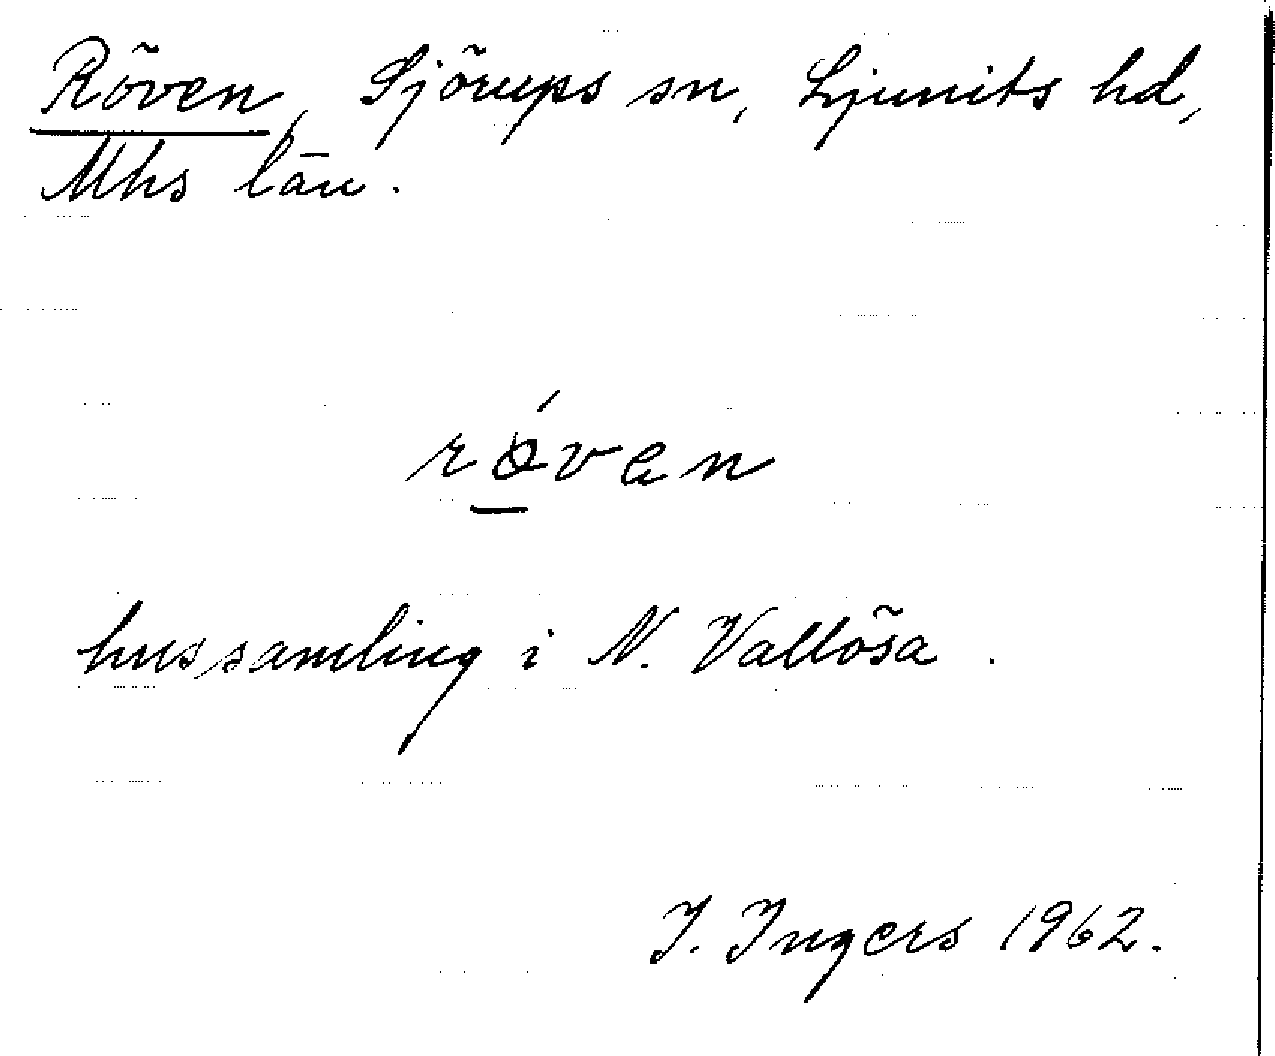 Röven, Sjörups sn, Ljunits hd,
Mhs län.
rǿven
hussamling i N. Vallösa.
I. Ingers 1962.